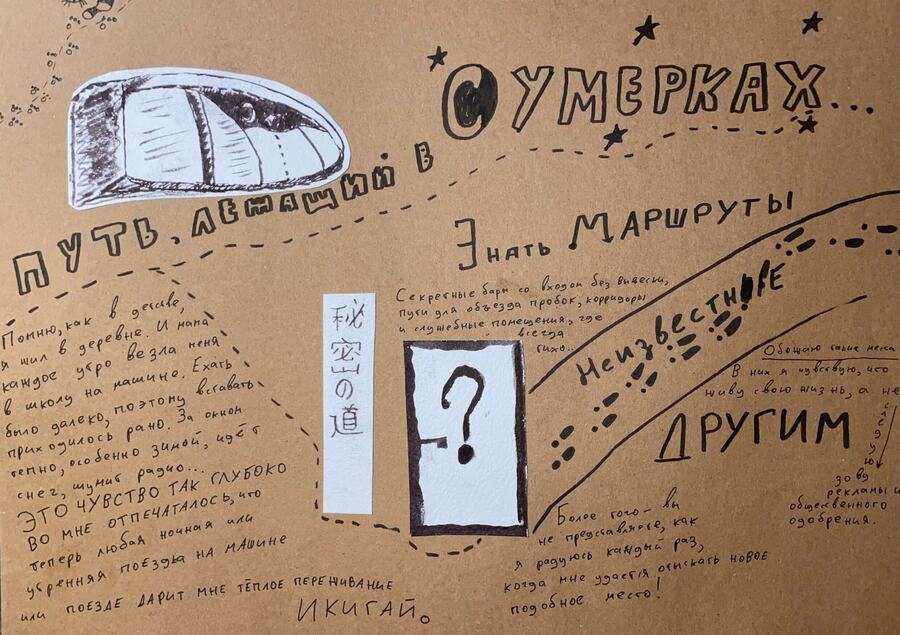 Путь, лежащий в
Сумерках...
Помню, как в детстве,
я жил в деревне. И мама
каждое утро везла меня
в школу на машине. Ехать
было далеко, поэтому вставать
приходилось рано. За окном
темно, особенно зимой, идёт
снег, шумит радио...
ЭТО ЧУВСТВО ТАК ГЛУБОКО
ВО МНЕ ОТПЕЧАТАЛОСЬ, что
теперь любая ночная или
утренняя поездка на машине
или поезде дарит мне тёплое переживание
ИКИГАЙ。
秘密の道
Знать Маршруты
Неизвестные
ДРУГИМ
Секретные бары со входом без вывески,
пути для объезда пробок, корридоры
и служебные помещения, где
всегда
тихо...
?
Обожаю такие места
В них я чувствую, что
живу свою жизнь, а не
следую
зову
рекламы и
общественного
одобрения.
Более того - вы
не представляете, как
я радуюсь каждый раз,
когда мне удаётся отыскать новое
подобное место!